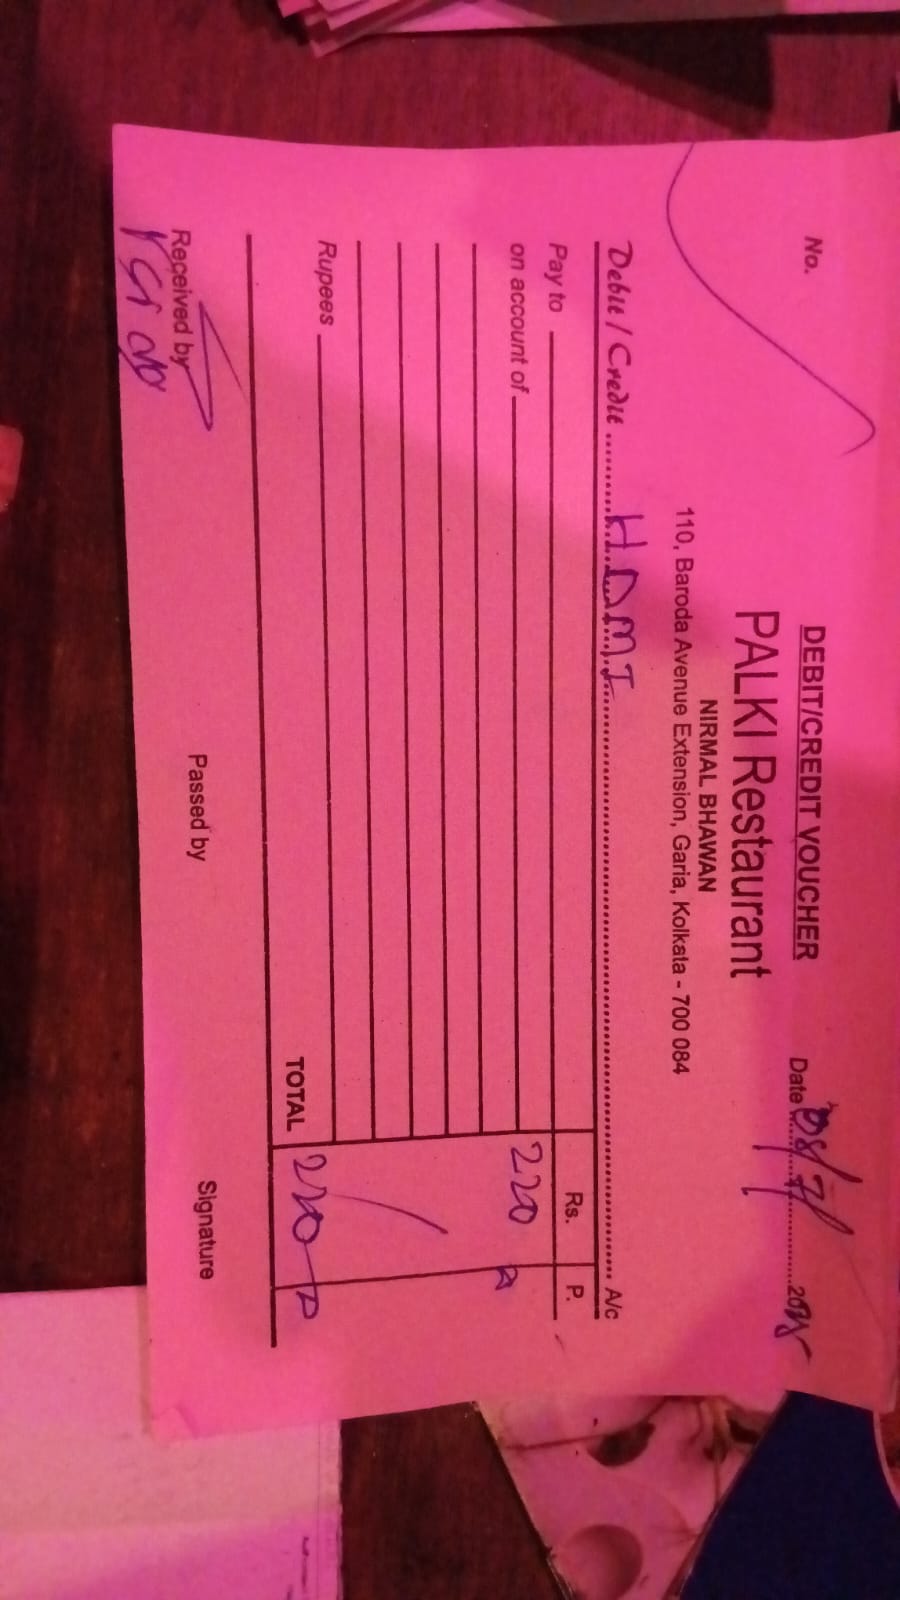 DEBIT/CREDIT VOUCHER
No.
Date 08/7/ 2025
PALKI Restaurant
NIRMAL BHAWAN
110, Baroda Avenue Extension, Garia, Kolkata - 700 084
Debit / Credit HDMI A/c
Rs. P.
Pay to
on account of 220
Rupees
TOTAL 220
Received by
Passed by
Signature